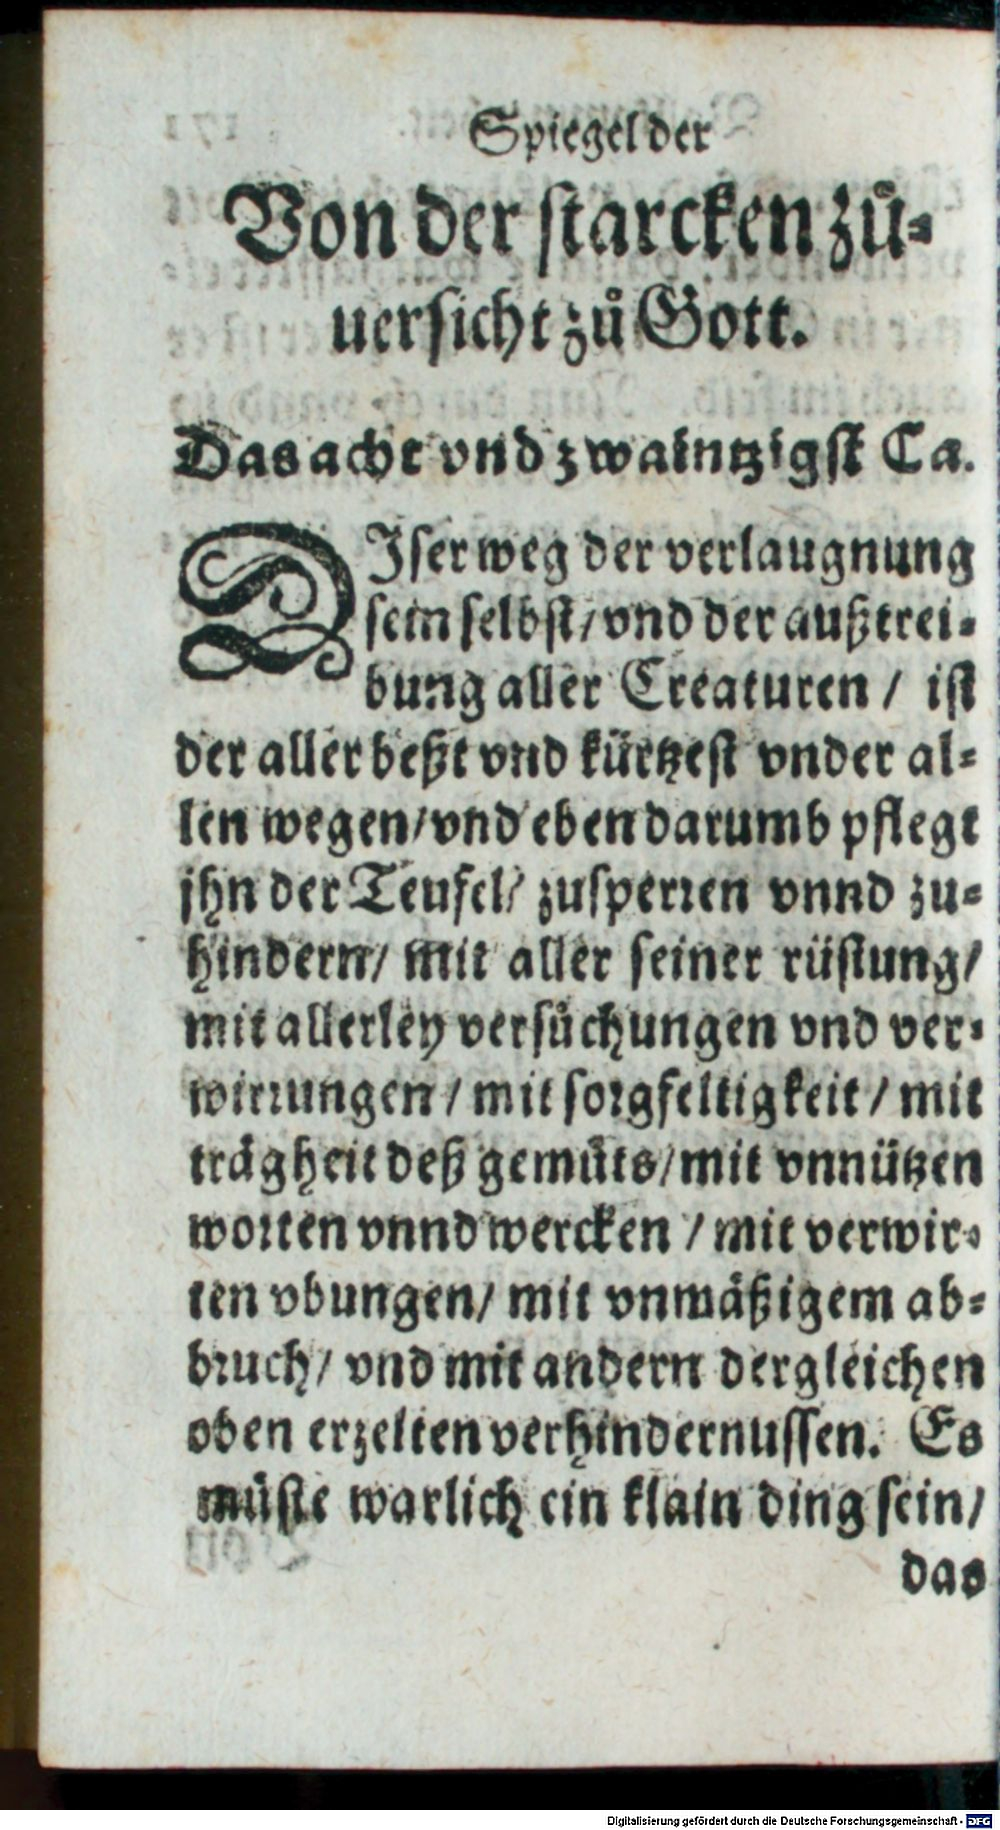 Spiegel der
Von der starcken zů-
uersicht zů Gott.
Das acht vnd zwaintzigst Ca.
DIser weg der verlaugnung
sein selbst/ vnd der außtrei-
bung aller Creaturen / ist
der aller beßt vnd kürtzest vnder al-
len wegen/ vnd eben darumb pflegt
jhn der Teufel/ zusperren vnnd zu-
hindern/ mit aller seiner rüstung/
mit allerley versůchungen vnd ver-
wirrungen / mit sorgfeltigkeit / mit
trägheit deß gemüts/ mit vnnützen
worten vnnd wercken / mit verwir-
ten vbungen/ mit vnmäßigem ab-
bruch/ vnd mit andern dergleichen
oben erzelten verhindernussen. Es
müste warlich ein klain ding sein/
das
Digitalisierung gefördert durch die Deutsche Forschungsgemeinschaft - DFG